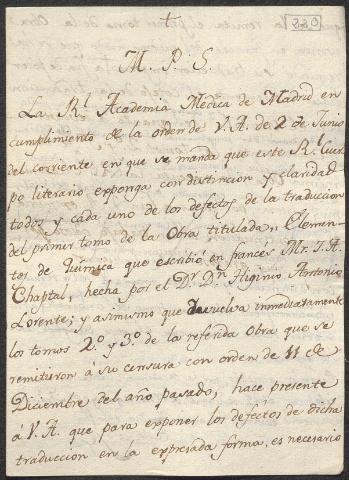 220
M. P. S.
La Rl. Academia Médica de Madrid en
cumplimiento de la orden de V. A. de 2 de Junio
del corriente en que se manda que este Rl. Cuer-
po literario exponga con distincion y claridad
todos y cada uno de los defectos de la traduccion
del primer tomo de la Obra titulada,, Elemen-
tos de Quimica que escribió en francés Mr. J. A.
Chaptal, hecha por el Dr. Dn. Higinio Antonio
Lorente; y asimismo que devuelva inmediatamente
los tomos 2.º y 3.º de la referida Obra que se
remitieron á su censura con orden de 11 de
Diciembre del año pasado, hace presente
á V. A. que para exponer los defectos de dicha
traduccion en la expresada forma, es necesario